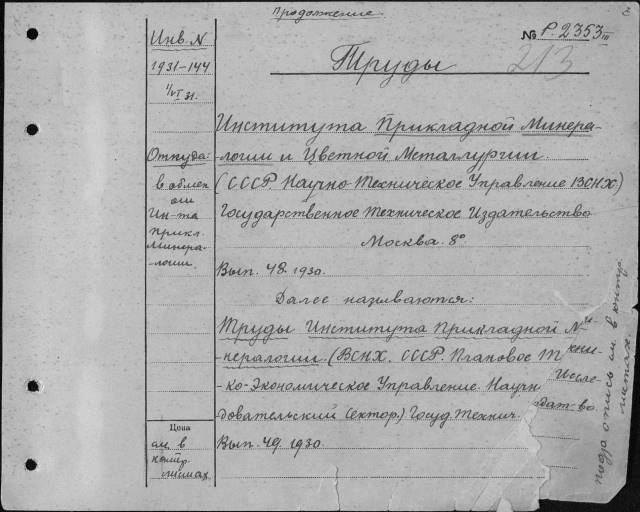 Продолжение
№ Р.2353 III
213
Труды
Инв. N
1931-144
1/VI 31.
Откуда:
в обмен
от
Ин-та
прикл.
минера-
-логии.
Цена
см. в
контр.
листах
Института Прикладной Минера-
-логии и Цветной Металлургии.
(СССР. Научно-Техническое Управление ВСНХ)
Государственное Техническое Издательство
Москва. 8°
Вып. 48. 1930.
Далее называются:
Труды Института Прикладной Ми-
-нералогии. (ВСНХ. СССР. Плановое Т
-ко-Экономическое Управление. Научн Иссле-
довательский Сектор.) Госуд. Технич. дат-во.
Вып. 49. 1930.
опись см. в контр.
листах.